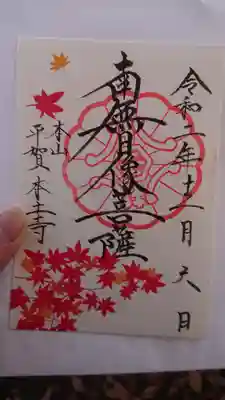 令和二年十一月日
南無日像菩薩
本山
平賀本土寺